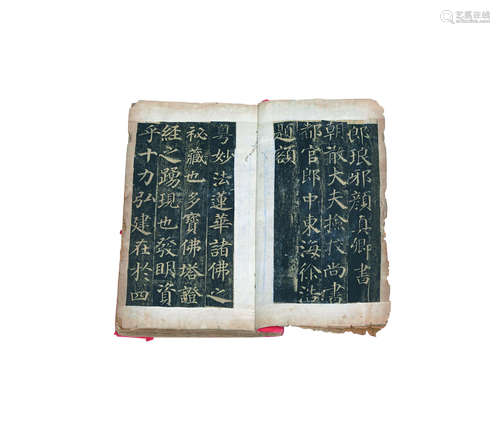 郎琅邪顏真卿書
朝散大夫撿校尚書
都官郎中東海徐浩
題額
粵妙法蓮華諸佛之
祕藏也多寶佛塔證
經之踴現也發明資
乎十力弘建在於四